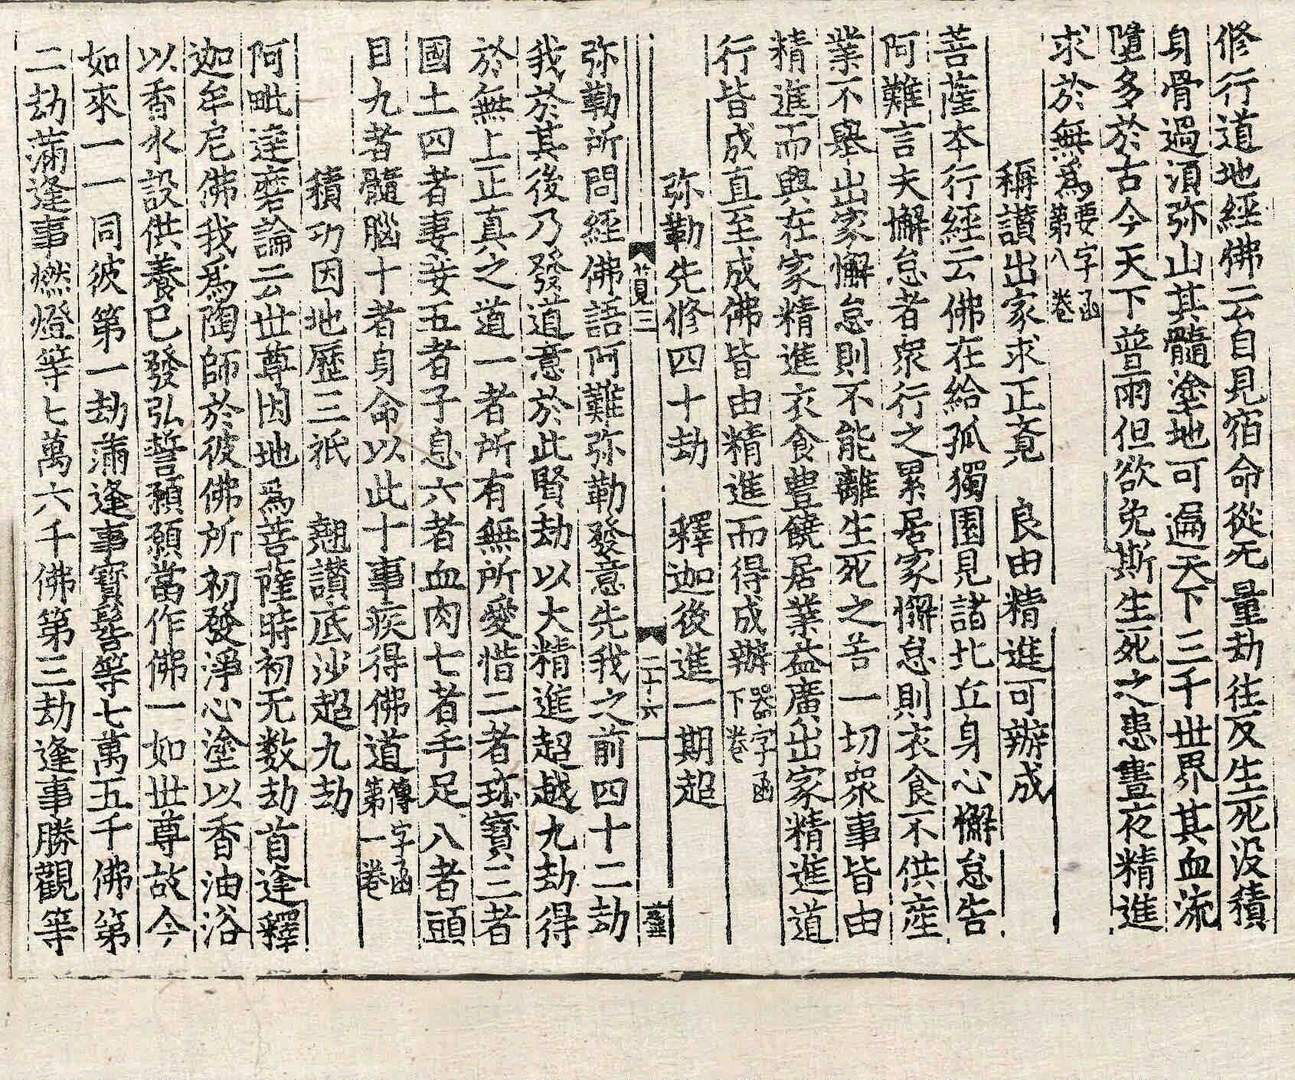 修行道地經佛云自見宿命從无量劫往反生死没積
身骨過須弥山其髓塗地可遍天下三千世界其血流
墮多於古今天下普雨但欲免斯生死之患晝夜精進
求於無爲要字函第八卷
稱讃出家求正竟　良由精進可辦成
菩薩本行經云佛在給孤獨園見諸比丘身心懈怠告
阿難言夫懈怠者衆行之累居家懈怠則衣食不供産
業不舉出家懈怠則不能離生死之苦一切衆事皆由
精進而興在家精進衣食豊饒居業益廣出家精進道
行皆成直至成佛皆由精進而得成辦器字函下卷
弥勒先修四十劫　釋迦後進一期超
弥勒所問經佛語阿難弥勒發意先我之前四十二劫
我於其後乃發道意於此賢劫以大精進超越九劫得
於無上正真之道一者所有無所愛惜二者珎寳三者
國土四者妻妾五者子息六者血肉七者手足八者頭
目九者髓腦十者身命以此十事疾得佛道傳字函第一卷
積功因地歷三祇　翹讃底沙超九劫
阿毗達磨論云世尊因地爲菩薩時初无数劫首逢釋
迦牟尼佛我爲陶師於彼佛所初發淨心塗以香油浴
以香水設供養已發弘誓願願當作佛一如世尊故今
如來一一同彼第一劫滿逢事寳髻等七萬五千佛第
二劫滿逢事燃燈等七萬六千佛第三劫逢事勝觀等